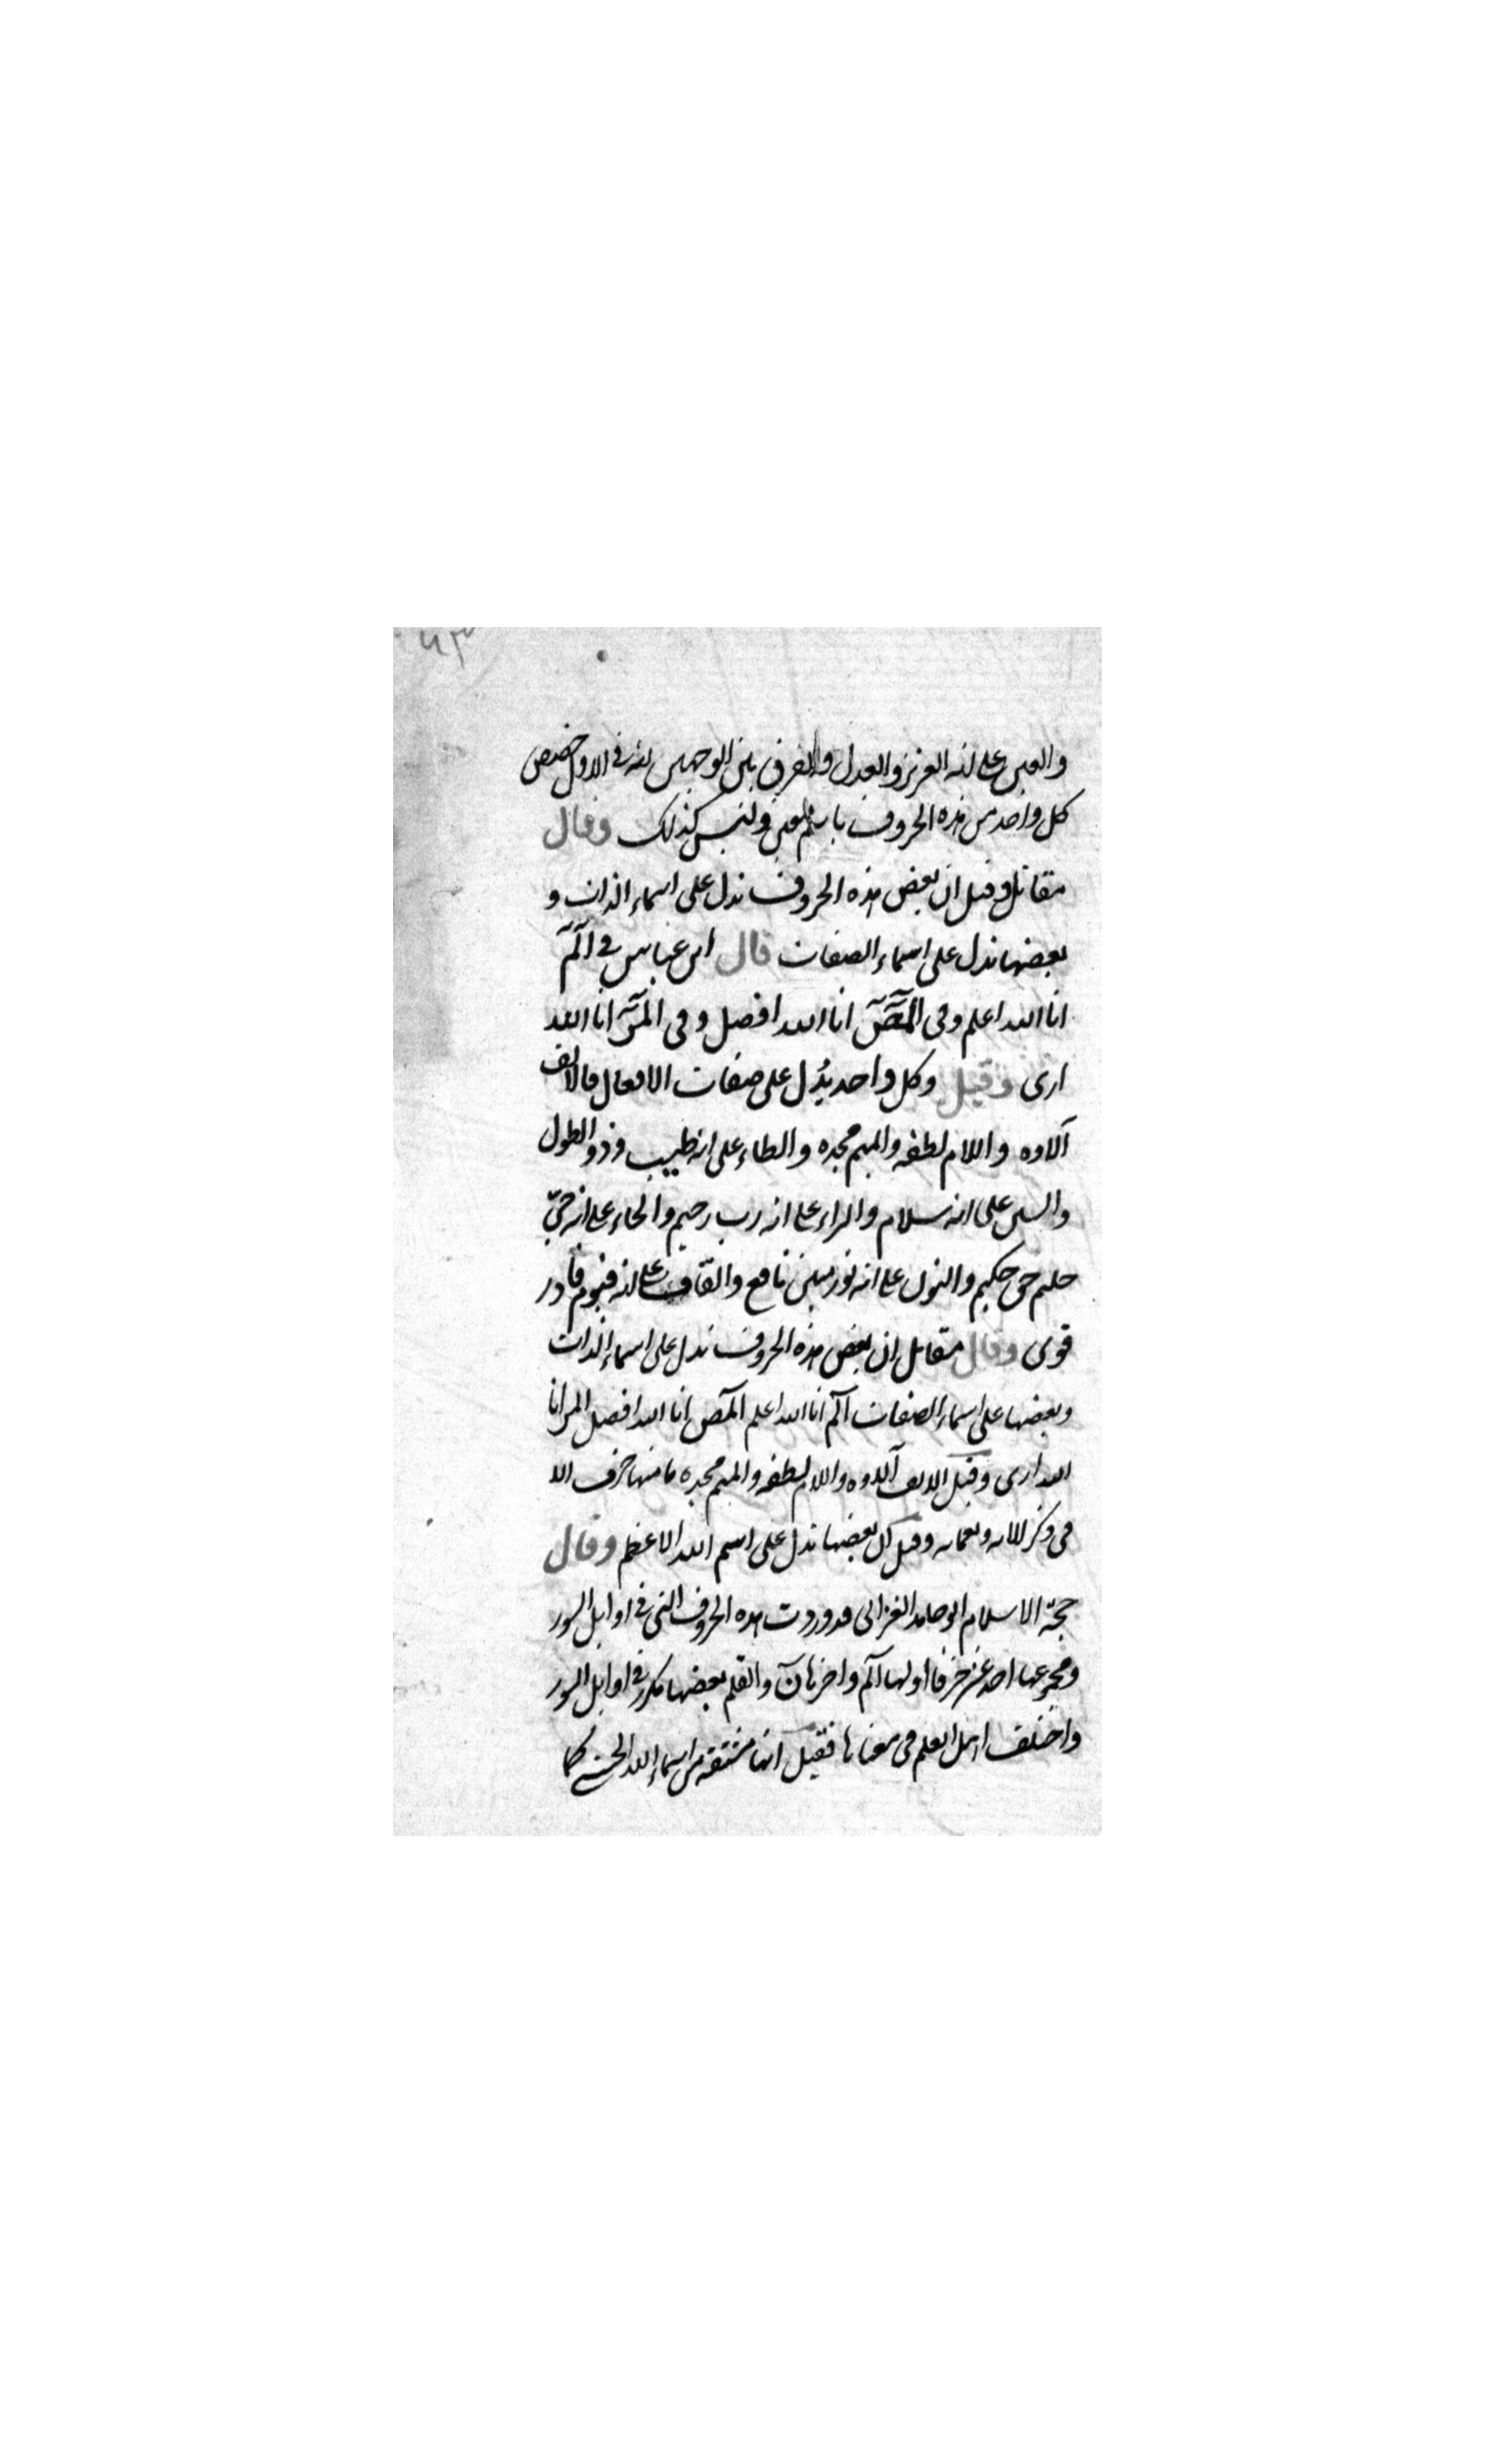 ٤٣
والعين على انه العزيز والعدل والفرق بين الوجهين انه فى الاول خصص
كل واحد من هذه الحروف باسم معين وليس كذلك وقال
مقاتل وقيل ان بعض هذه الحروف تدل على اسماء الذات و
بعضها تدل على اسماء الصفات قال ابن عباس فى آلمّ
انا الله اعلم وفى المّصّ انا الله افصل وفى المّرّ انا الله
ارى وقيل وكل واحد يدل على صفات الافعال فالالف
آلاوه واللام لطفه والميم مجده والطاء على انه طيب وذو الطول
والسين على انه سلام والراء على انه رب رحيم والحاء على انه حىّ
حليم حق حكيم والنون على انه نور مبين نافع والقاف على انه قيوم قادر
قوى وقال مقاتل ان بعض هذه الحروف تدل على اسماء الذات
وبعضها على اسماء الصفات آلم انا الله اعلم المّص انا الله افصل المر انا
الله ارى وقيل الالف آلاوه واللام لطفه والميم مجده ما منها حرف الا
فى ذكر الائه ونعمائه وقيل كل بعضها تدل على اسم الله الاعظم وقال
حجة الاسلام ابو حامد الغزالى قد وردت هذه الحروف التى فى اوايل السور
ومجموعها احد عشر حرفا اولها آلم واخرها نّ والقلم بعضها مكرر فى اوايل السور
واختلف اهل العلم فى معناها فقيل انها مشتقه من اسماء الله الحسنى كما